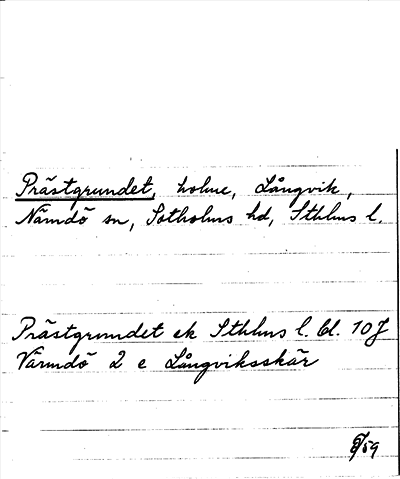 Prästgrundet, holme, Långvik,
Nämdö sn, Sotholms hd, Sthlms l.
Prästgrundet ek Sthlms l. bl. 10J
Värmdö 2 e Långviksskär
/59